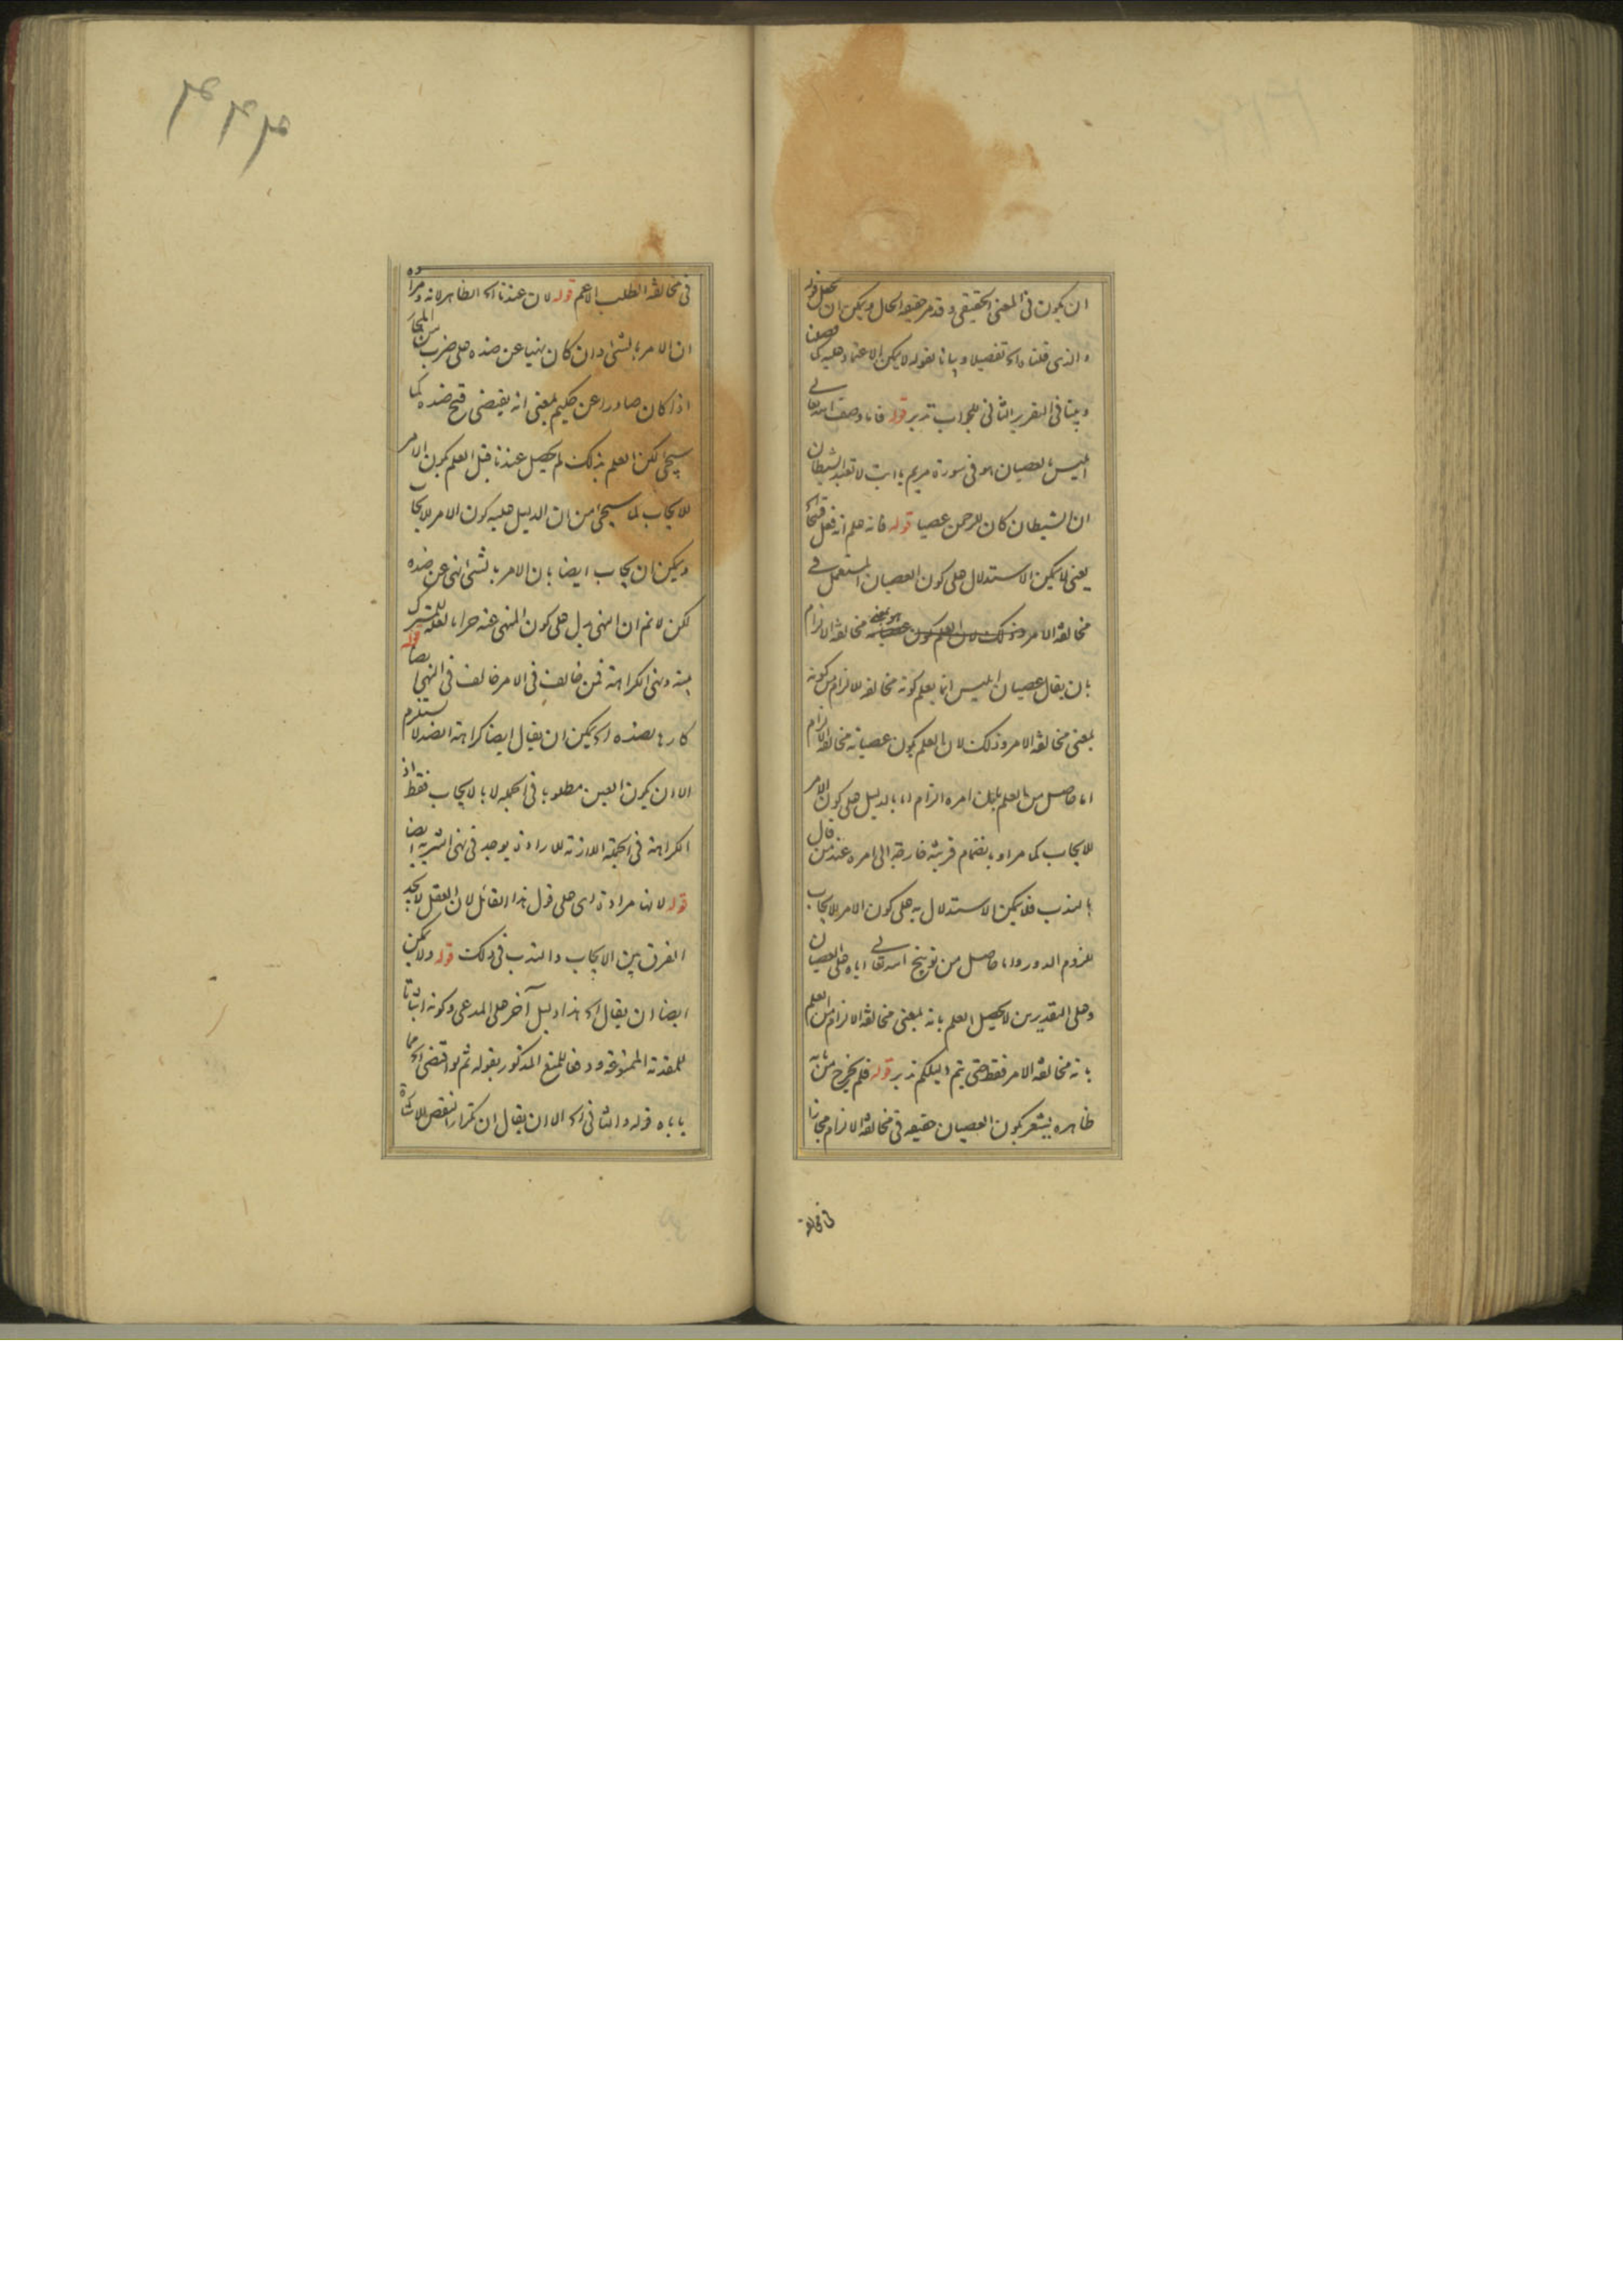 ان يكون فى المعنى الحقيقى وقد مر حقيقه الحال ويمكن ان يحمل قوله
والذى قلناه اى تفصيلا وبيانا بقوله لا يمكن الاعتماد عليه
وبينا فى التقرير الثانى للجواب تدبر قوله فانا وصف الله تعالى
ابليس بالعصيان هو فى سورة مريم يا ابت لا تعبد الشيطان
ان الشيطان كان للرحمن عصيا قوله فانه علم انه فعل قبيحا
يعنى لا يمكن الاستدلال على كون العصيان المستعمل فى
مخالفة الامر وذلك لان العلم بكون عصيانه مخالفة الالزام
بان يقال عصيان ابليس انما يعلم كونه مخالفه للالزام من كونه
بمعنى مخالفة الامر وذلك لان العلم بكون عصيانه مخالفة الالزام
اما حاصل من العلم بان امره الزام اما بالدليل على كون الامر
للايجاب كما مر او بانضمام قرينة خارجة الى امره عند من قال
بالندب فلا يمكن الاستدلال به على كون الامر للايجاب
للزوم الدور واما حاصل من توبيخ الله تعالى اياه على العصيان
وعلى التقديرين لا يحصل العلم بانه بمعنى مخالفة الالزام من العلم
بانه مخالفة الامر فقط حتى يتم دليلكم تدبر قوله فلم يخرج من بابه
ظاهره يشعر بكون العصيان حقيقه فى مخالفة الالزام مجازا
فى مخالفة
۴۴۴
فى مخالفة الطلب الاعم قوله لان عندنا اى الظاهر لانه ومراده
ان الامر بالشئ وان كان نهيا عن ضده على ضرب من المجاز
اذا كان صادرا عن حكيم بمعنى انه يقتضى قبح ضده كما
سيجئ لكن العلم بذلك لم يحصل عندنا قبل العلم بكون الامر
للايجاب لما سيجئ من ان الدليل عليه كون الامر للايجاب
ويمكن ان يجاب ايضا بان الامر بالشئ نهى عن ضده
لكن لا نم ان النهى يدل على كون المنهى عنه حراما لعله للمشترك
بينه وبين الكراهة فمن خالف فى الامر خالف فى النهى ايضا قوله
كارها لضده اى يمكن ان يقال ايضا كراهة الضد لا تستلزم
الا ان يكون العين مطلوبا فى الجمله لا بالايجاب فقط اذ
الكراهة فى الجملة اللازمة للارادة يوجد فى نهى التنزيه ايضا
قوله لانها مرادة اى على قول هذا القائل لان العقل لا يجد
الفرق بين الايجاب والندب فى ذلك قوله ولا يمكن
ايضا ان يقال اى هذا دليل آخر على المدعى وكونه اثباتا
للمقدمة الممنوعة ودفعا للمنع المذكور بقوله ثم لو اقتضى اى مما
ياباه قوله والثانى اى الا ان يقال ان تكرار النقص للاشارة